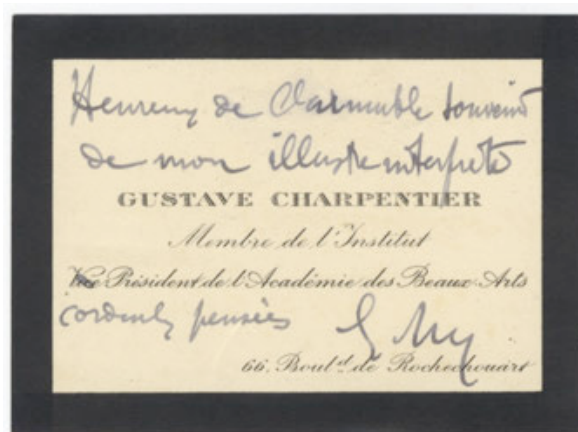 Heureux de l'aimable souvenir
de mon illustre interprète
GUSTAVE CHARPENTIER
Membre de l'Institut
Vice Président de l'Académie des Beaux Arts
pensées
66, Boulᵈ de Rochechouart